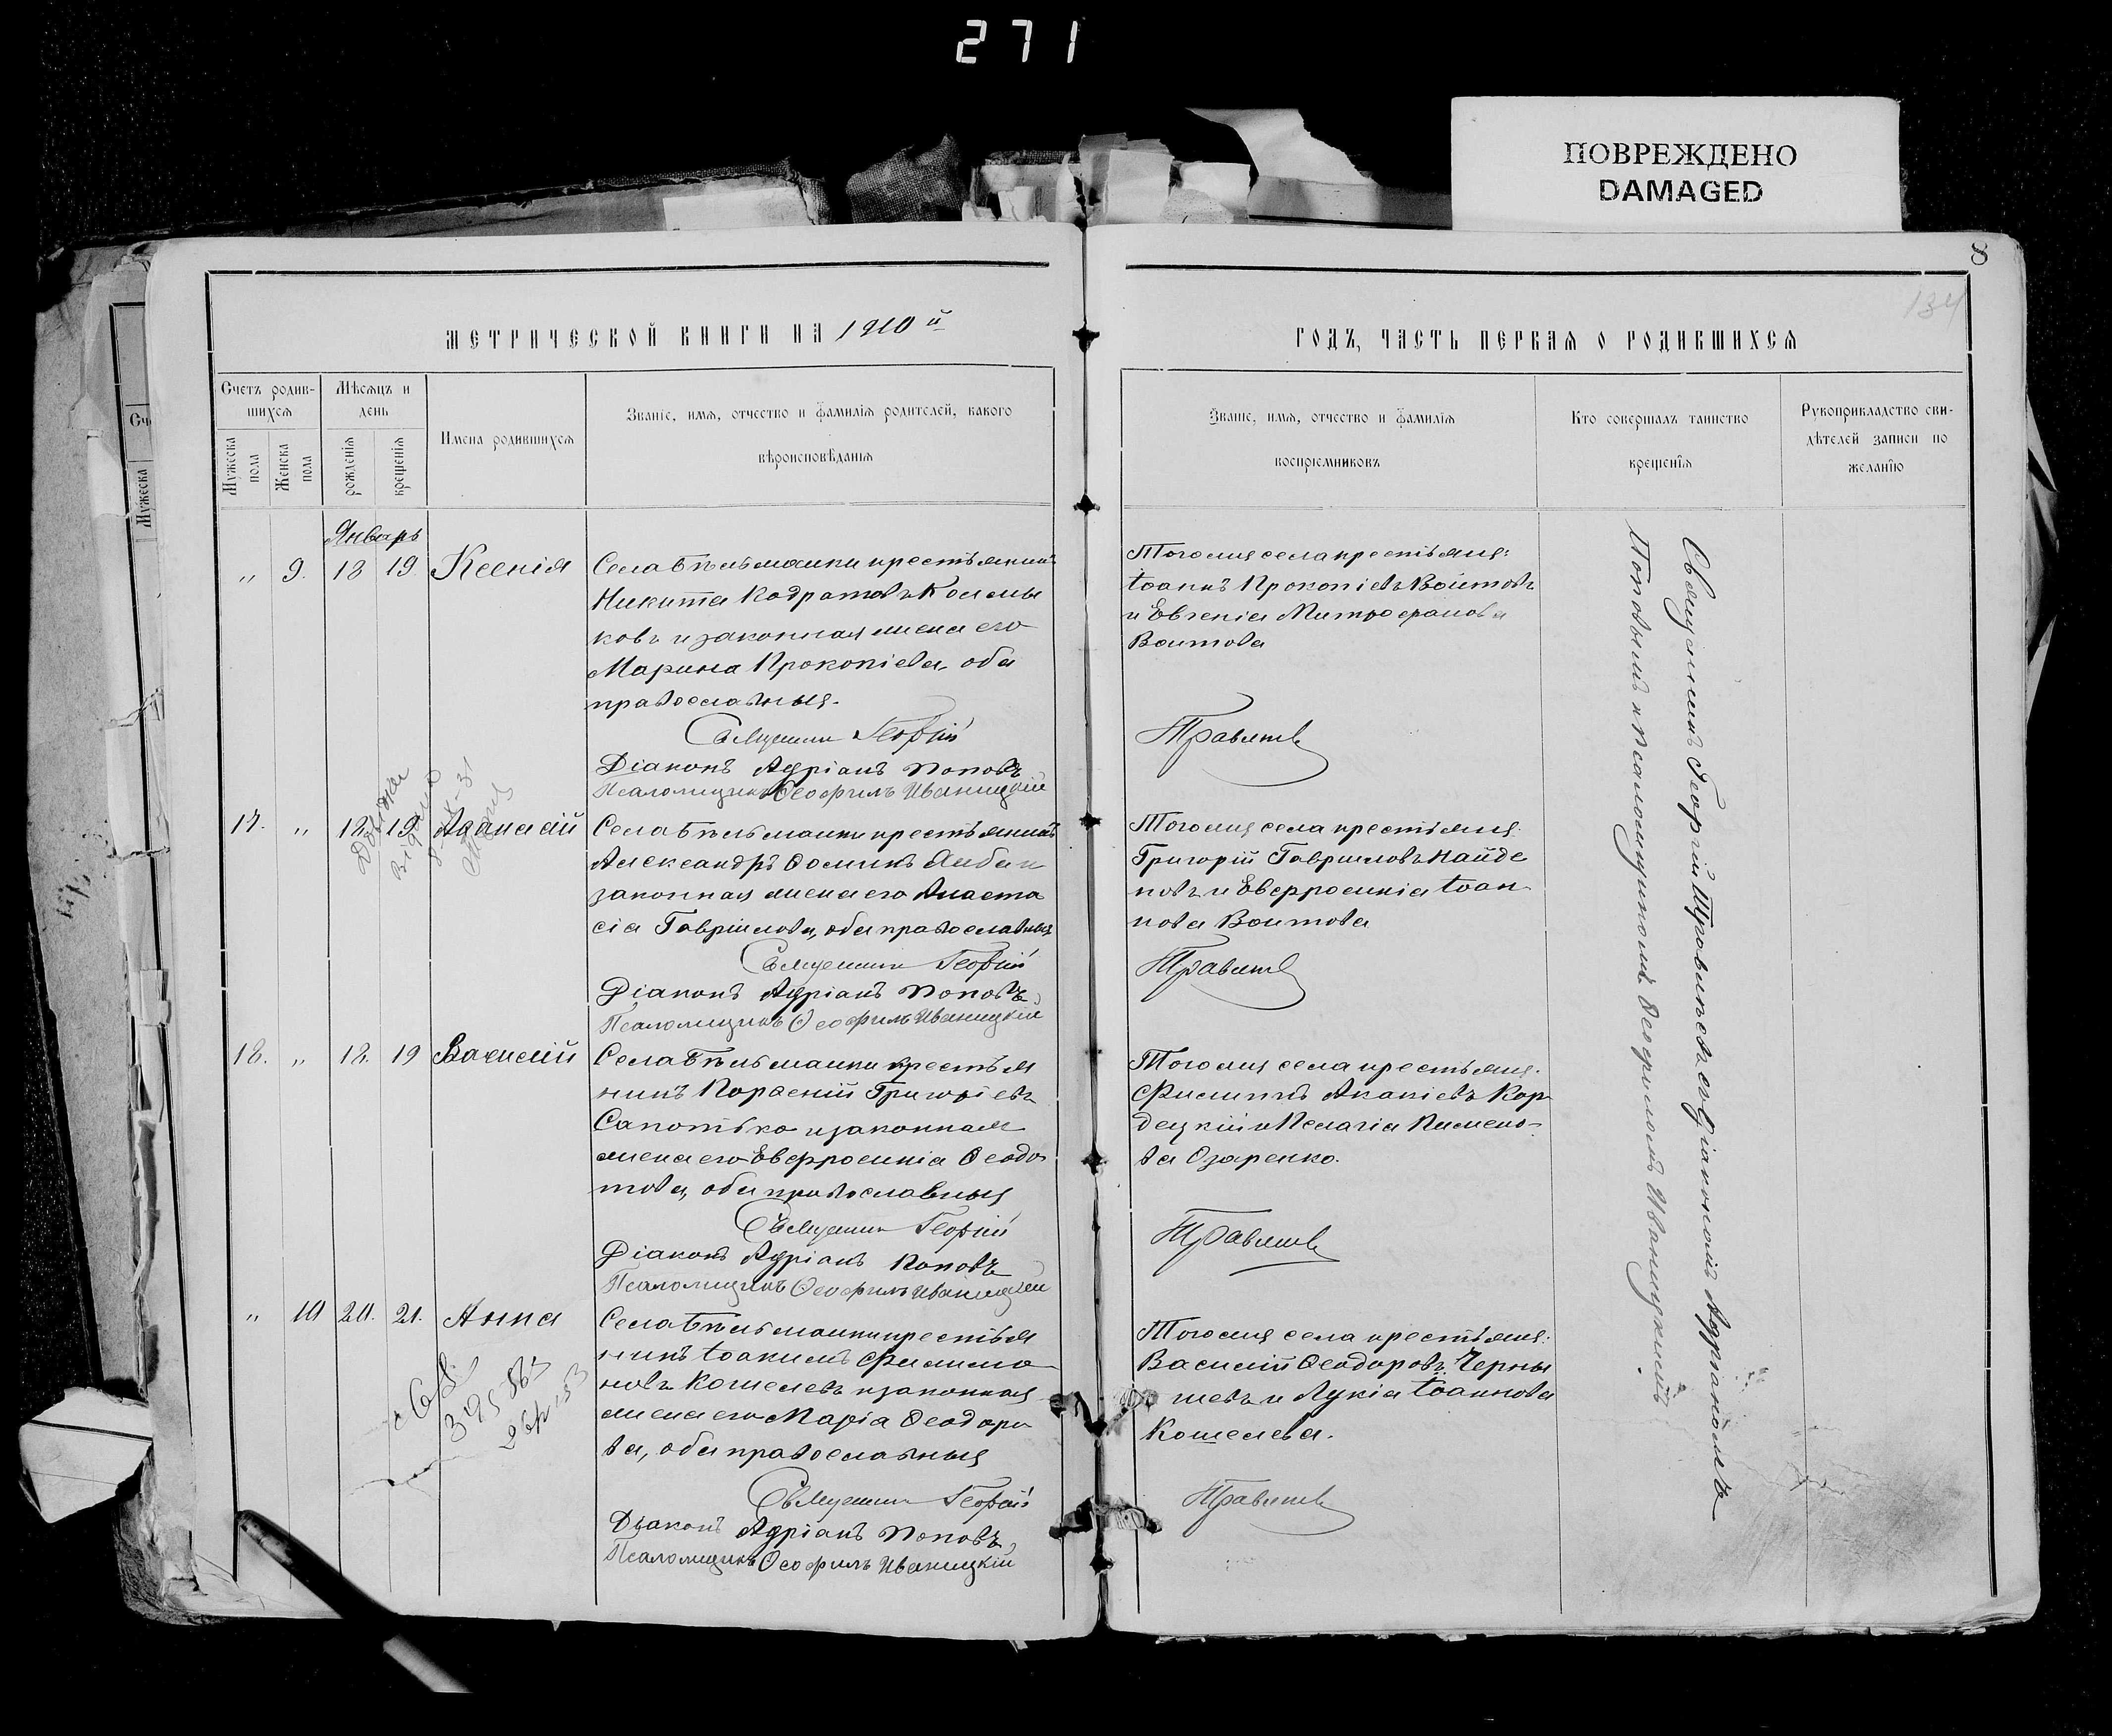 271
ПОВРЕЖДЕНО
DAMAGED
8
134
МЕТРИЧЕСКОЙ КНИГИ НА 1910й
ГОДЪ, ЧАСТЬ ПЕРВАЯ О РОДИВШИХСЯ
Счетъ родив-
шихся
Мужеска пола
Женска пола
Мѣсяцъ и
день
рожденія
крещенія
Имена родившихся
Званіе, имя, отчество и фамилія родителей, какого
вѣроисповѣданія
Званіе, имя, отчество и фамилія
воспріемниковъ
Кто совершалъ таинство
крещенія
Рукоприкладство сви-
дѣтелей записи по
желанію
Январь
„ 9. 18 19. Ксенія
Села Бѣльманки крестьянинъ
Никита Кодратовъ Колмы
ковъ и законная жена его
Марина Прокопіева, оба
православныя.
Священникъ Георгій
Діаконъ Адріанъ Поповъ
Псаломщикъ Ѳеофилъ Иваницкій
Тогоже села крестьяне:
Іоаннъ Прокопіевъ Воитовъ
и Евгенія Митрофанова
Воитова
17. „ 18. 19
Села Бѣльманки крестьянинъ
Александръ Ѳоминъ и
законная жена его Анаста
сія Гавріилова, оба православныя
Священникъ Георгій
Діаконъ Адріанъ Поповъ
Псаломщикъ Ѳеофилъ Иваницкій
Тогоже села крестьяне:
Григорій Гавриловъ Найде
новъ и Евфросинія Іоан
нова Воитова
18. „ 18. 19 Василій
Села Бѣльманки крестья
нинъ Григоріевъ
Сапотько и законная
жена его Евфросинія Ѳеодо
това, оба православныя
Священникъ Георгій
Діаконъ Адріанъ Поповъ
Псаломщикъ Ѳеофилъ Иваницкій
Тогоже села крестьяне:
Филиппъ Акакіевъ Кор
децкій и Пелагія Пимено-
ва Озаренко.
„ 10 20. 21. Анна
Села Бѣльманки крестья
нинъ Іоакимъ Филимо
новъ Кошелевъ и законная
жена его Марія Ѳеодоро
ва, оба православныя
Священникъ Георгій
Діаконъ Адріанъ Поповъ
Псаломщикъ Ѳеофилъ Иваницкій
Тогоже села крестьяне:
Василій Ѳеодоровъ Черны
шевъ и Лукія Іоаннова
Кошелева.
Священникъ Георгій съ діакономъ Адріаномъ
Поповымъ и псаломщикомъ Ѳеофиломъ Иваницкимъ